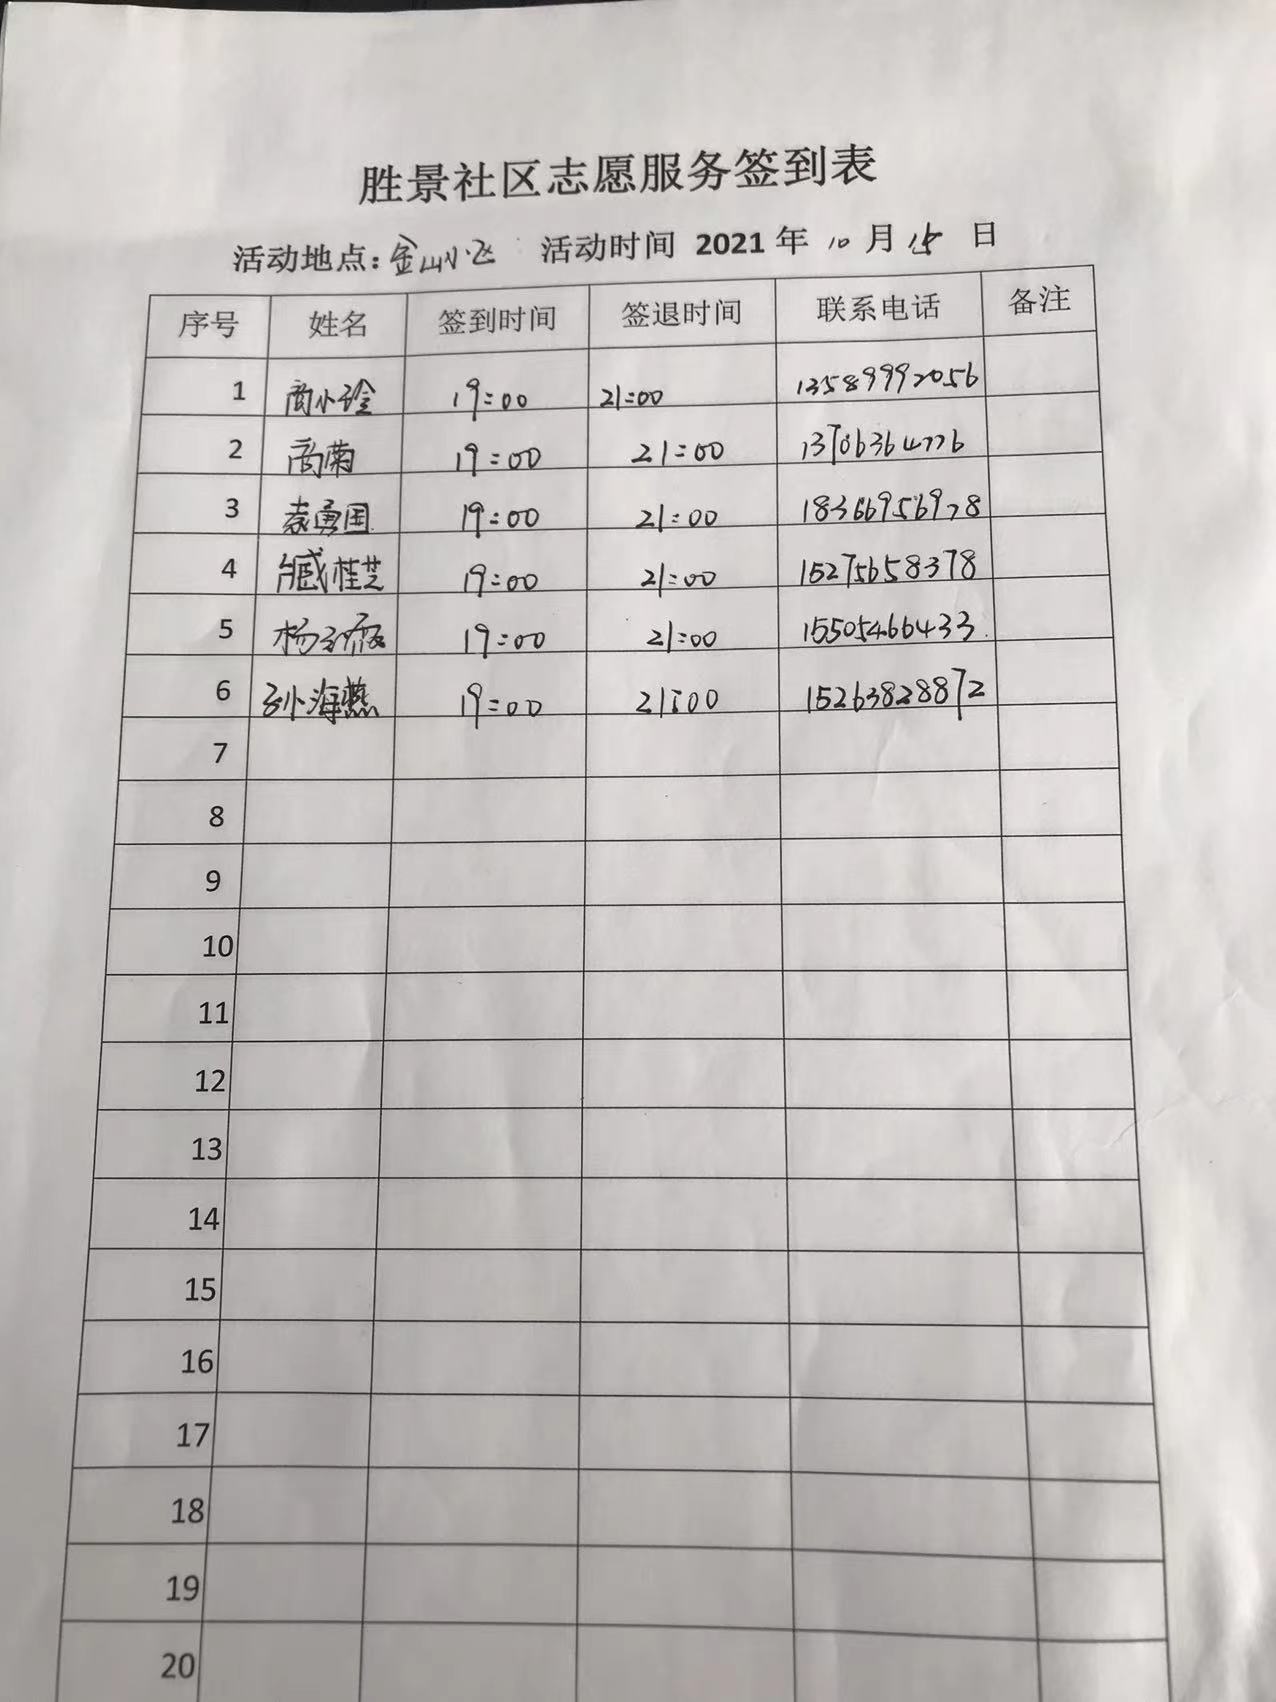 胜景社区志愿服务签到表
活动地点:金山小区 活动时间 2021 年 10 月 15 日
序号 姓名 签到时间 签退时间 联系电话 备注
1 商小玲 19:00 21:00 13589992056
2 商菊 19:00 21:00 13706364776
3 袁勇国 19:00 21:00 18366956978
4 臧桂芝 19:00 21:00 15275658378
5 19:00 21:00 15505466433
6 孙海燕 19:00 21:00 15263828872
7
8
9
10
11
12
13
14
15
16
17
18
19
20